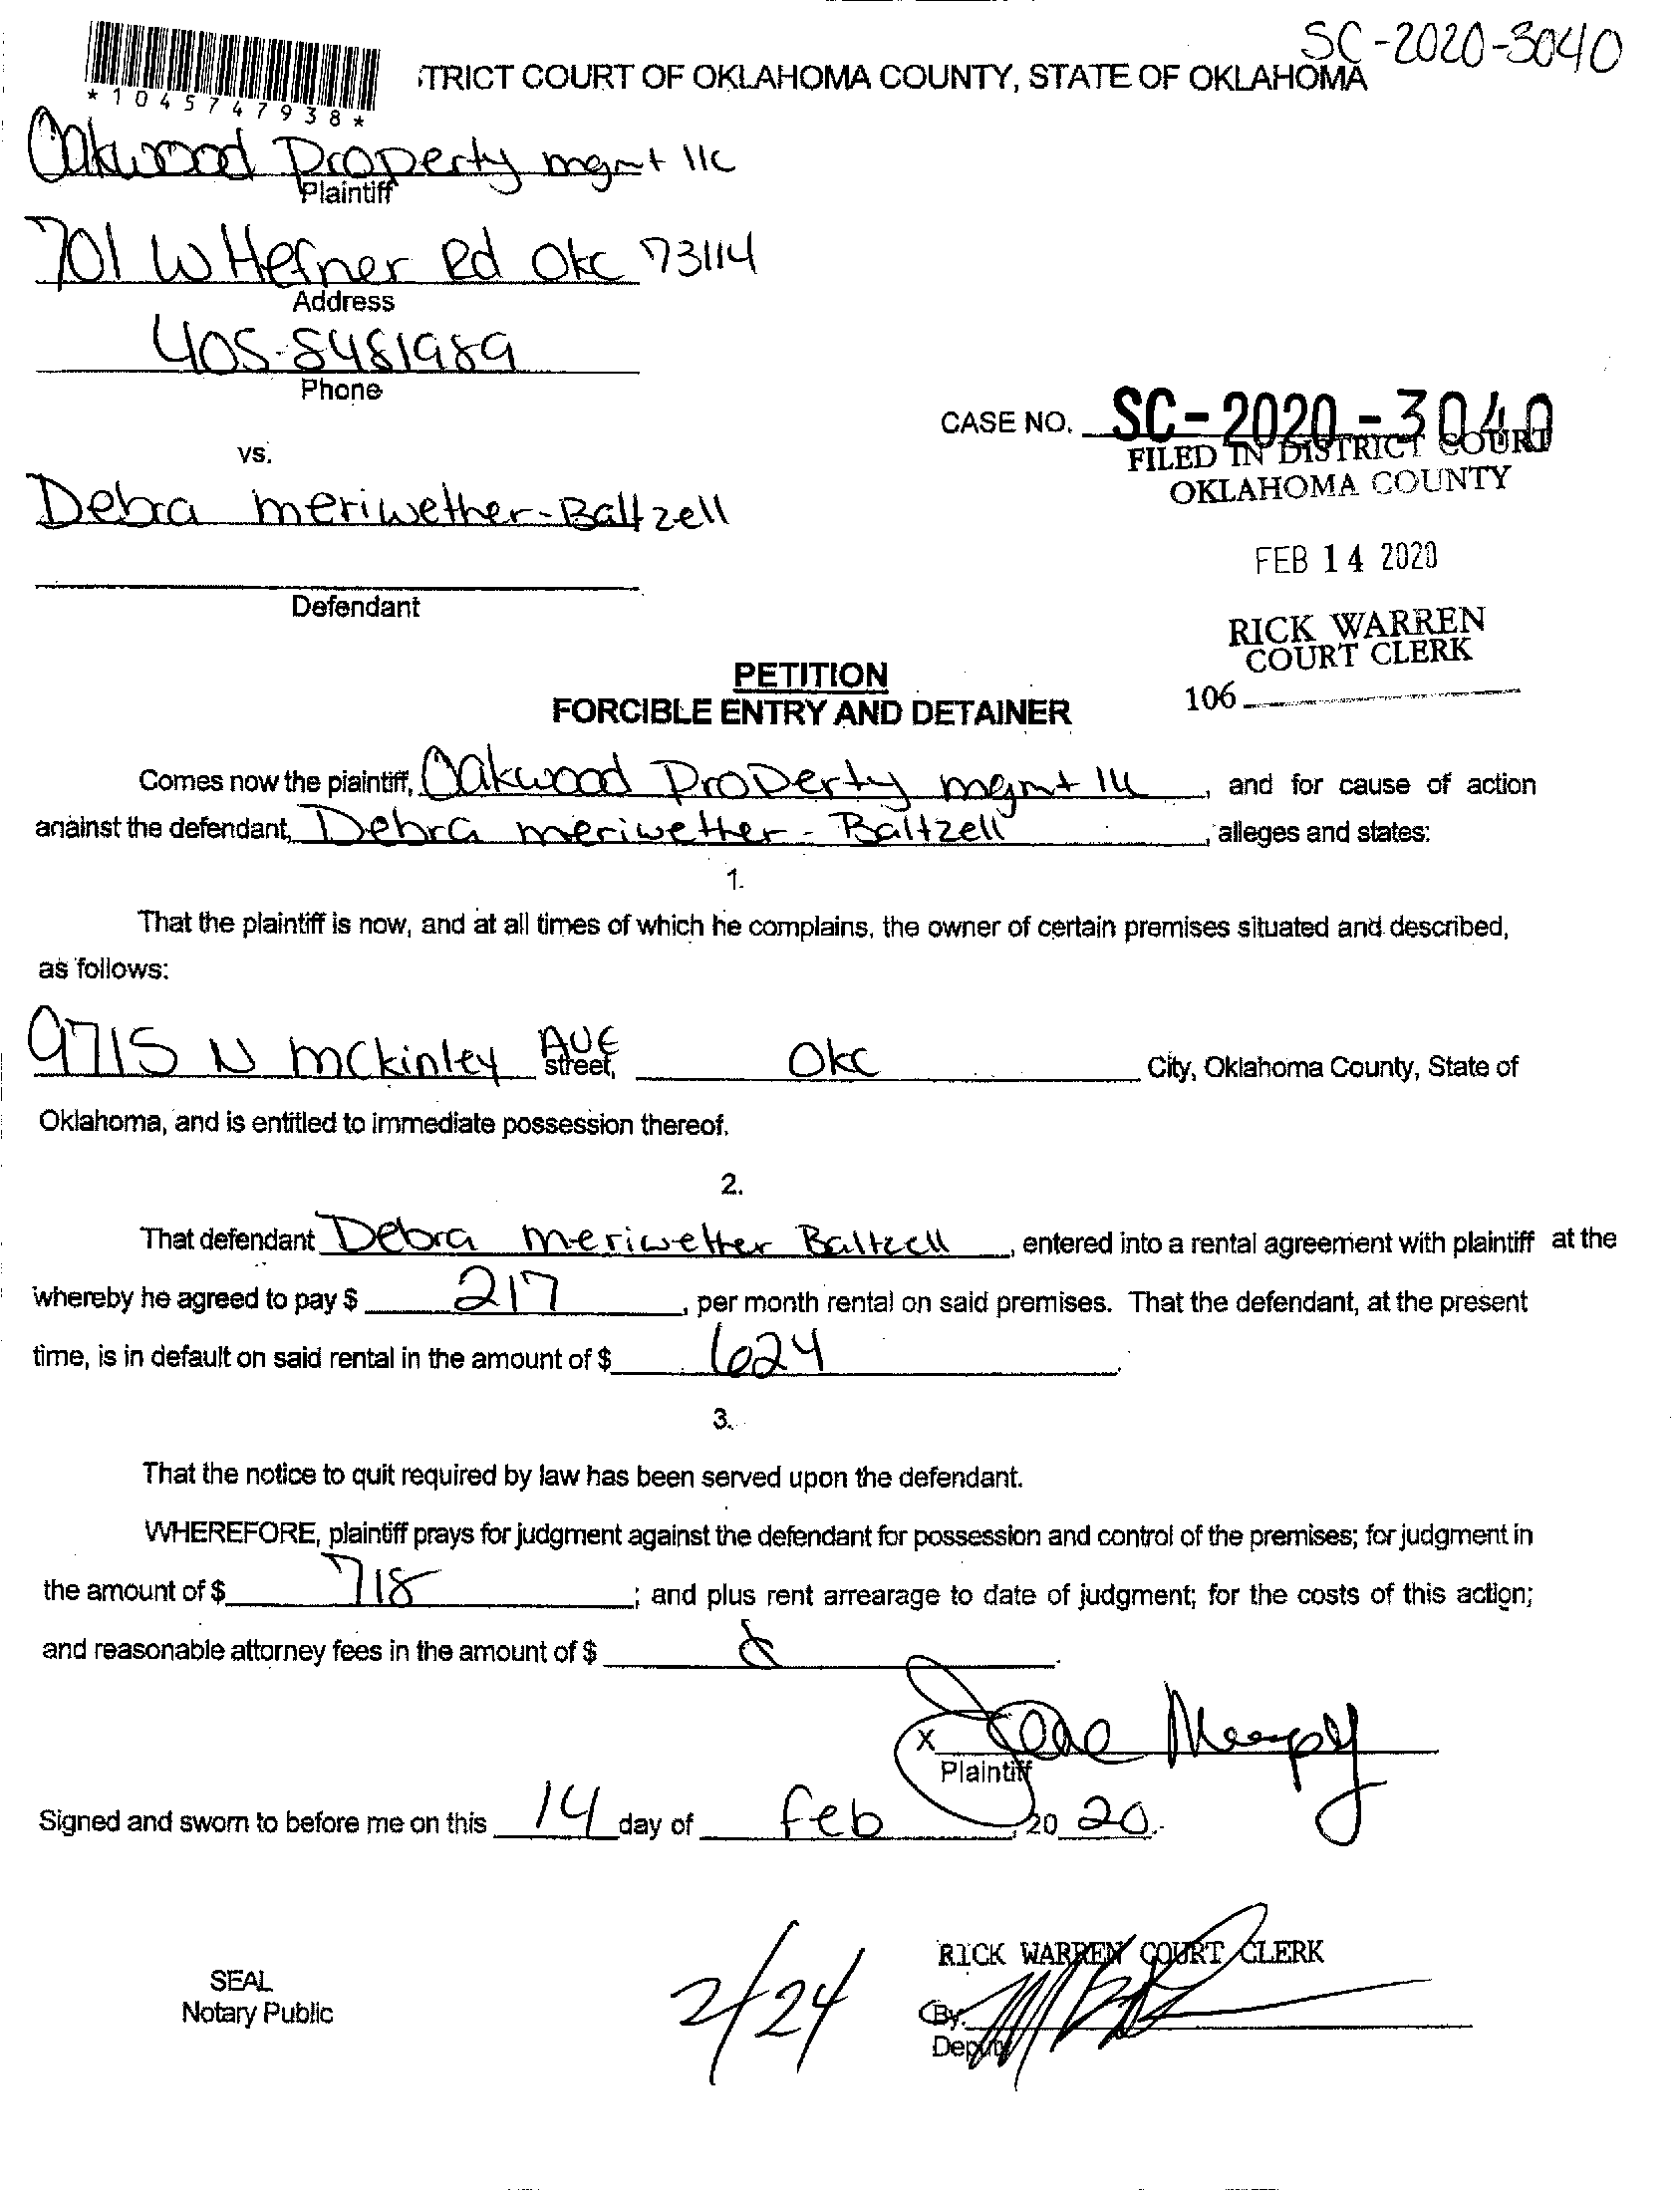 SC-2020-3040
TRICT COURT OF OKLAHOMA COUNTY, STATE OF OKLAHOMA
*1045747938*
Oakwood Property mgmt llc
Plaintiff
701 W Hefner Rd Okc 73114
Address
405-8481989
Phone
CASE NO. SC-2020-3040
FILED IN DISTRICT COURT
OKLAHOMA COUNTY
vs.
Debra meriwether-Baltzell
FEB 14 2020
Defendant
RICK WARREN
COURT CLERK
106
PETITION
FORCIBLE ENTRY AND DETAINER
Comes now the plaintiff, Oakwood Property mgmt llc, and for cause of action
against the defendant, Debra meriwether-Baltzell, alleges and states:
1.
That the plaintiff is now, and at all times of which he complains, the owner of certain premises situated and described,
as follows:
9715 N mckinley AVE street, Okc City, Oklahoma County, State of
Oklahoma, and is entitled to immediate possession thereof.
2.
That defendant Debra meriwether Baltzell, entered into a rental agreement with plaintiff at the
whereby he agreed to pay $ 217, per month rental on said premises. That the defendant, at the present
time, is in default on said rental in the amount of $ 624.
3.
That the notice to quit required by law has been served upon the defendant.
WHEREFORE, plaintiff prays for judgment against the defendant for possession and control of the premises; for judgment in
the amount of $ 718; and plus rent arrearage to date of judgment; for the costs of this action;
and reasonable attorney fees in the amount of $
X
Plaintiff
Signed and sworn to before me on this 14 day of Feb, 20 20.
RICK WARREN COURT CLERK
SEAL
Notary Public
2/24
By:
Deputy